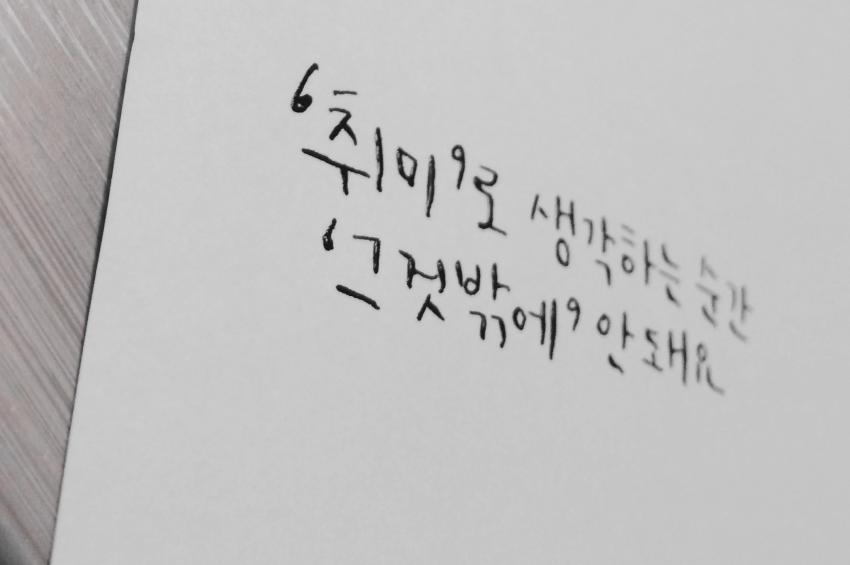 ‘취미’로 생각하는 순간
‘그것밖에’ 안돼요